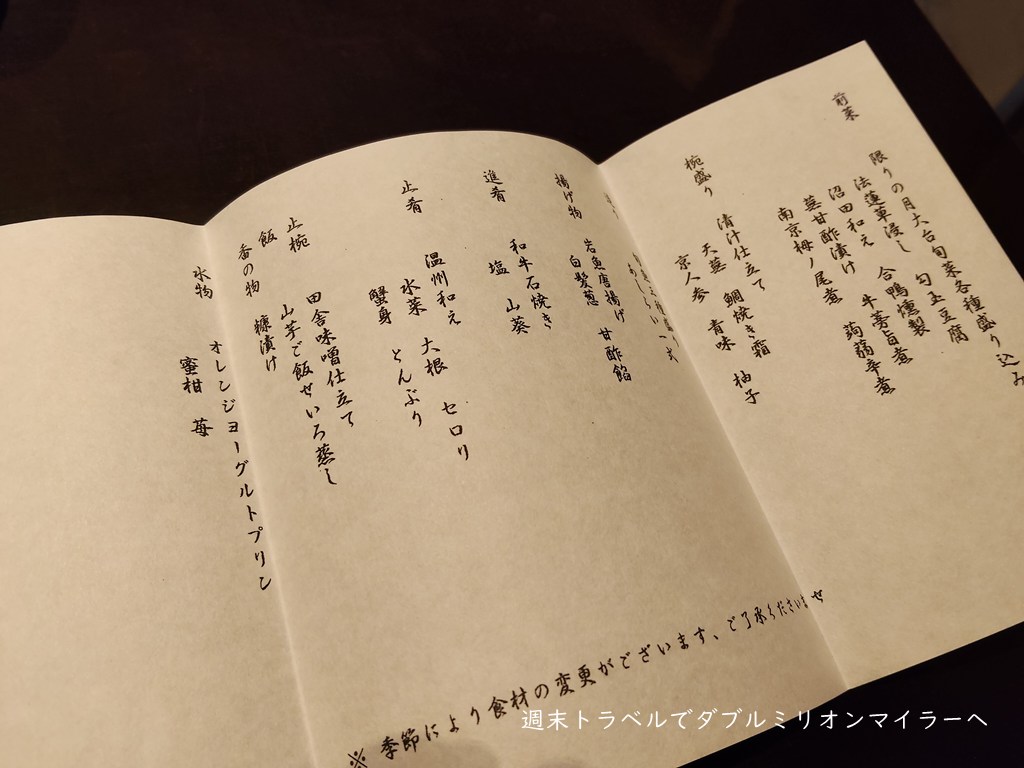 前菜
限りの月大台旬菜各種盛り込み
法蓮草浸し 勾玉豆腐
沼田和え 合鴨燻製
茎甘酢漬け 牛蒡旨煮
南京栂ノ尾煮 蒟蒻辛煮
椀盛り
清汁仕立て
天蕪 鯛焼き霜 柚子
京人参 青味
揚げ物
岩魚唐揚げ 甘酢餡
白髪葱
進肴
和牛石焼き
塩 山葵
止肴
温州和え 大根 セロリ
水菜 とんぶり
蟹身
止椀
田舎味噌仕立て
飯
山芋ご飯せいろ蒸し
香の物
糠漬け
水物
オレンジヨーグルトプリン
蜜柑 苺
※季節により食材の変更がございます、ご了承くださいませ
週末トラベルでダブルミリオンマイラーへ